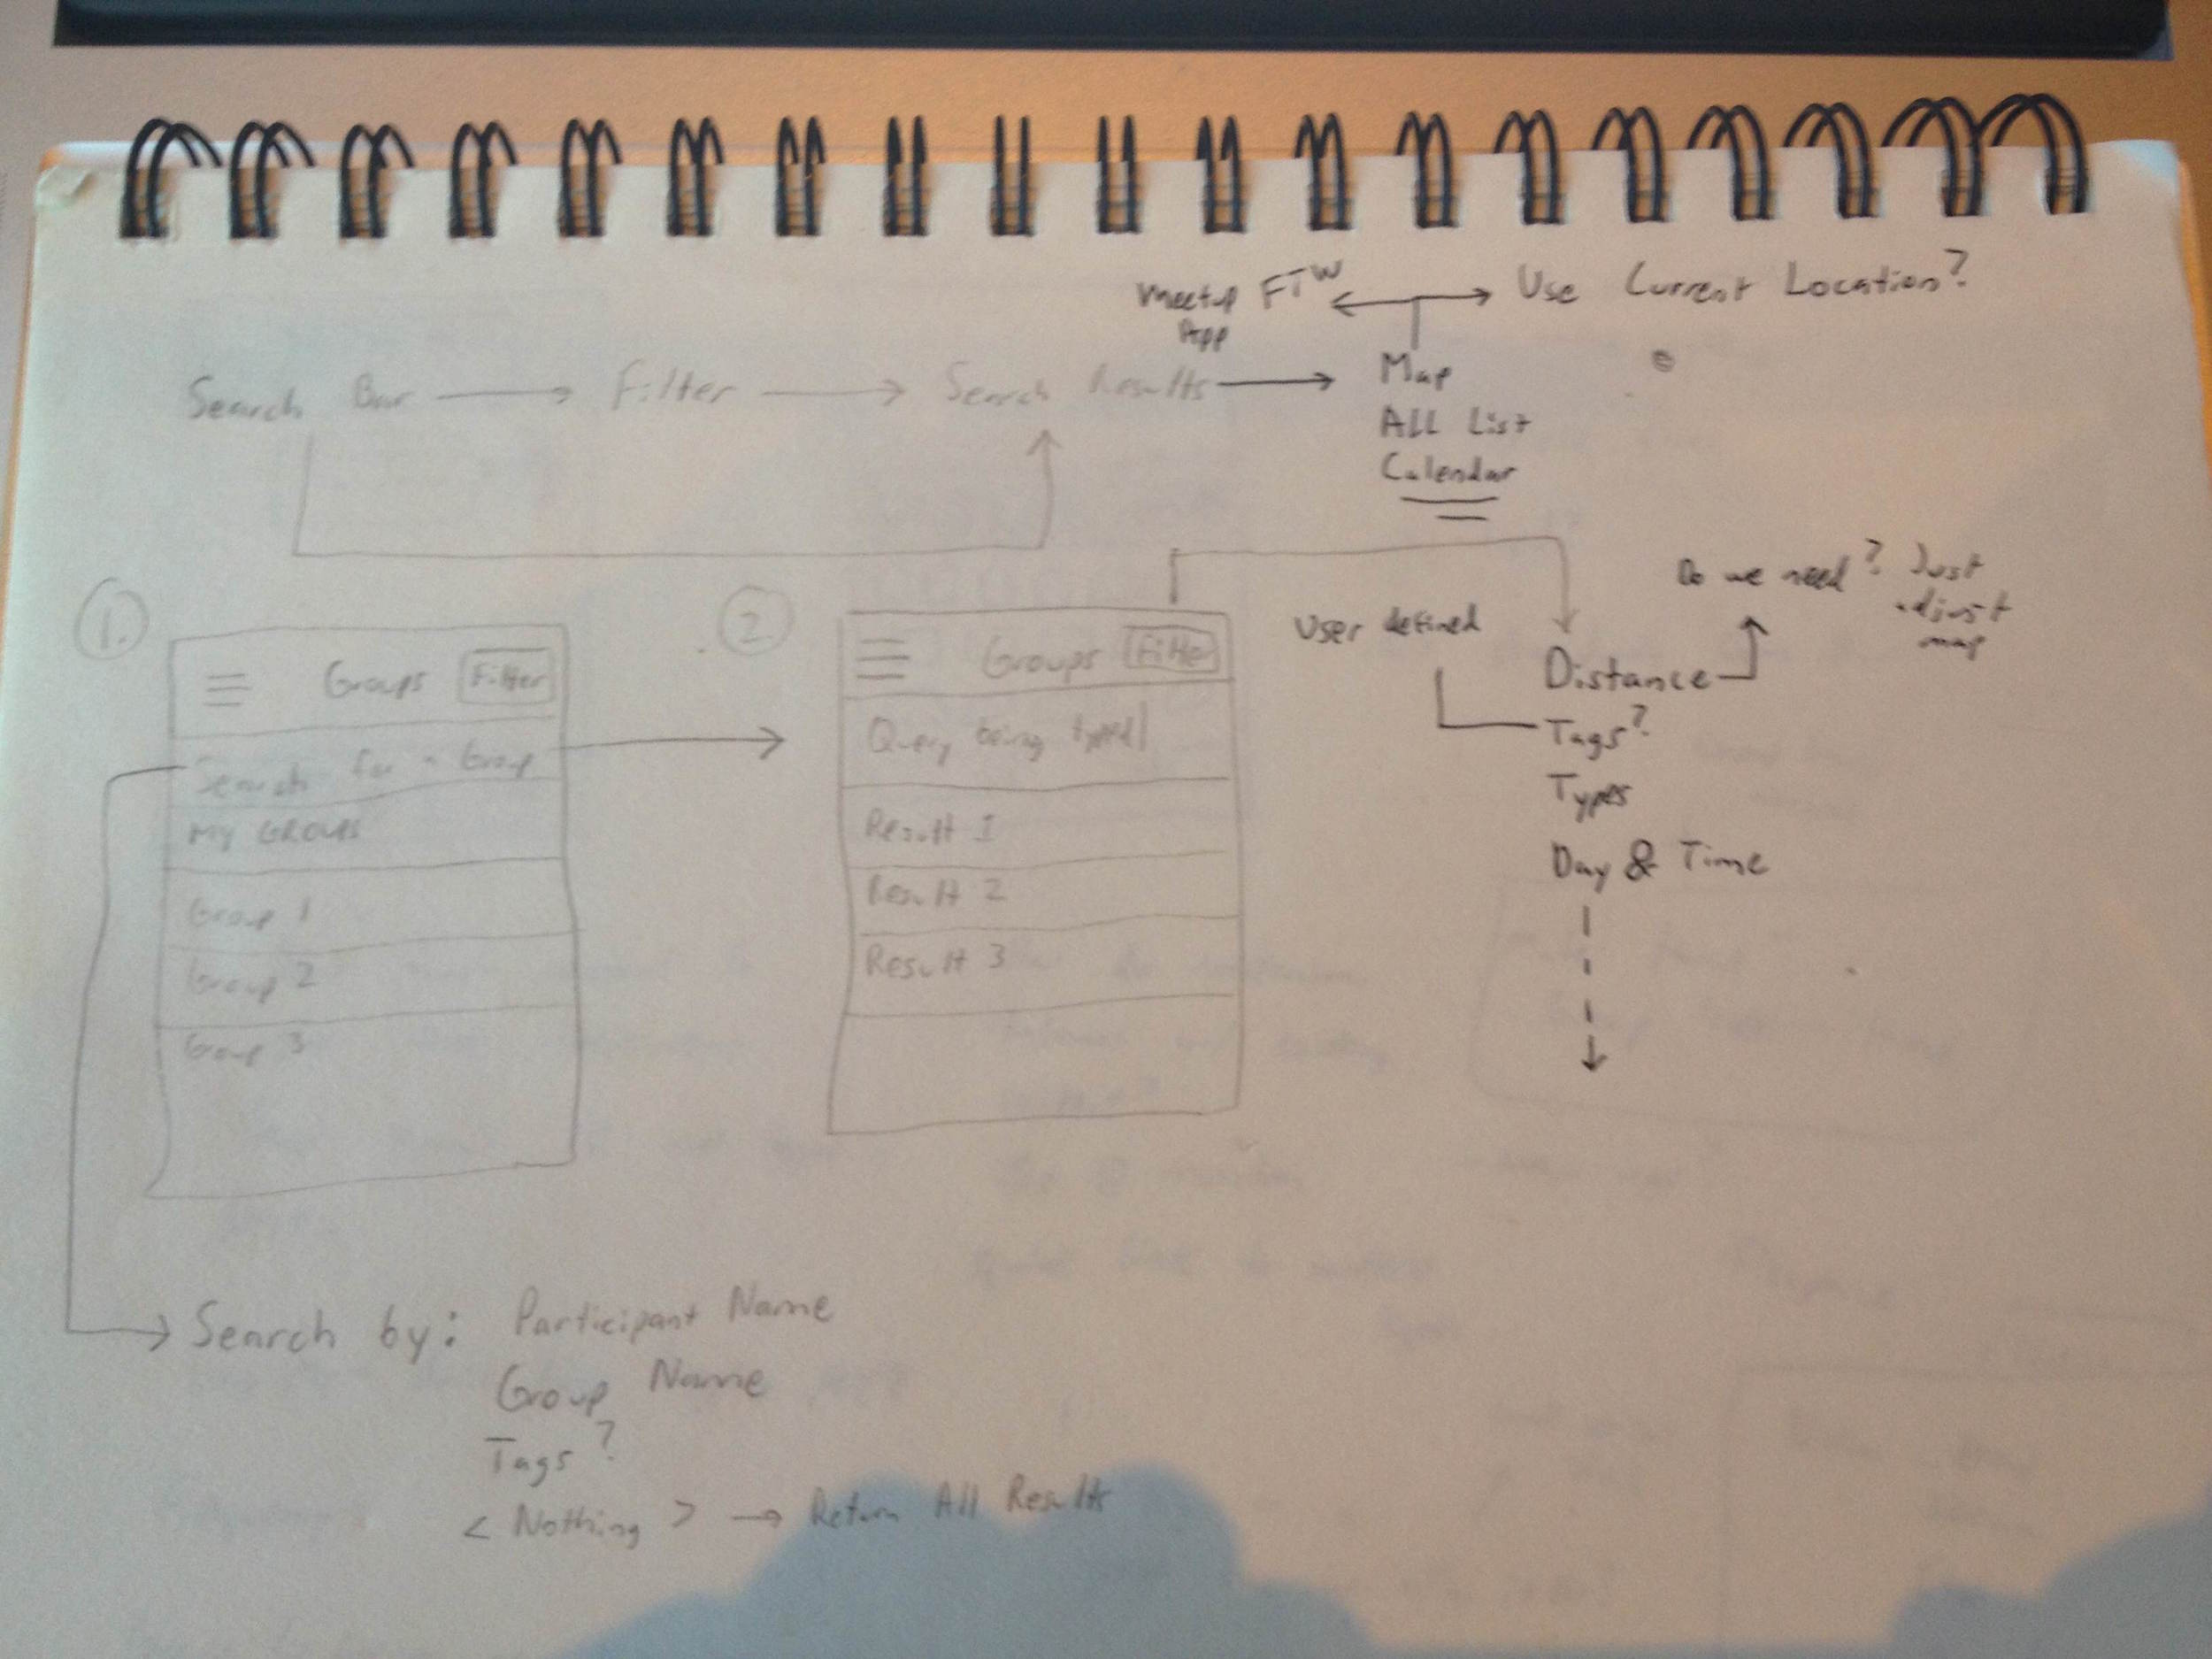 Meetup App FTW
Use Current Location?
Search Bar → Filter → Search Results → Map
All List
Calendar
1.
Groups Filter
Search for a Group
My GROUPS
Group 1
Group 2
Group 3
2
Groups Filter
Query being typed|
Result 1
Result 2
Result 3
User defined
Do we need? Just
adjust
map
Distance
Tags?
Types
Day & Time
Search by: Participant Name
Group Name
Tags?
< Nothing > → Return All Results